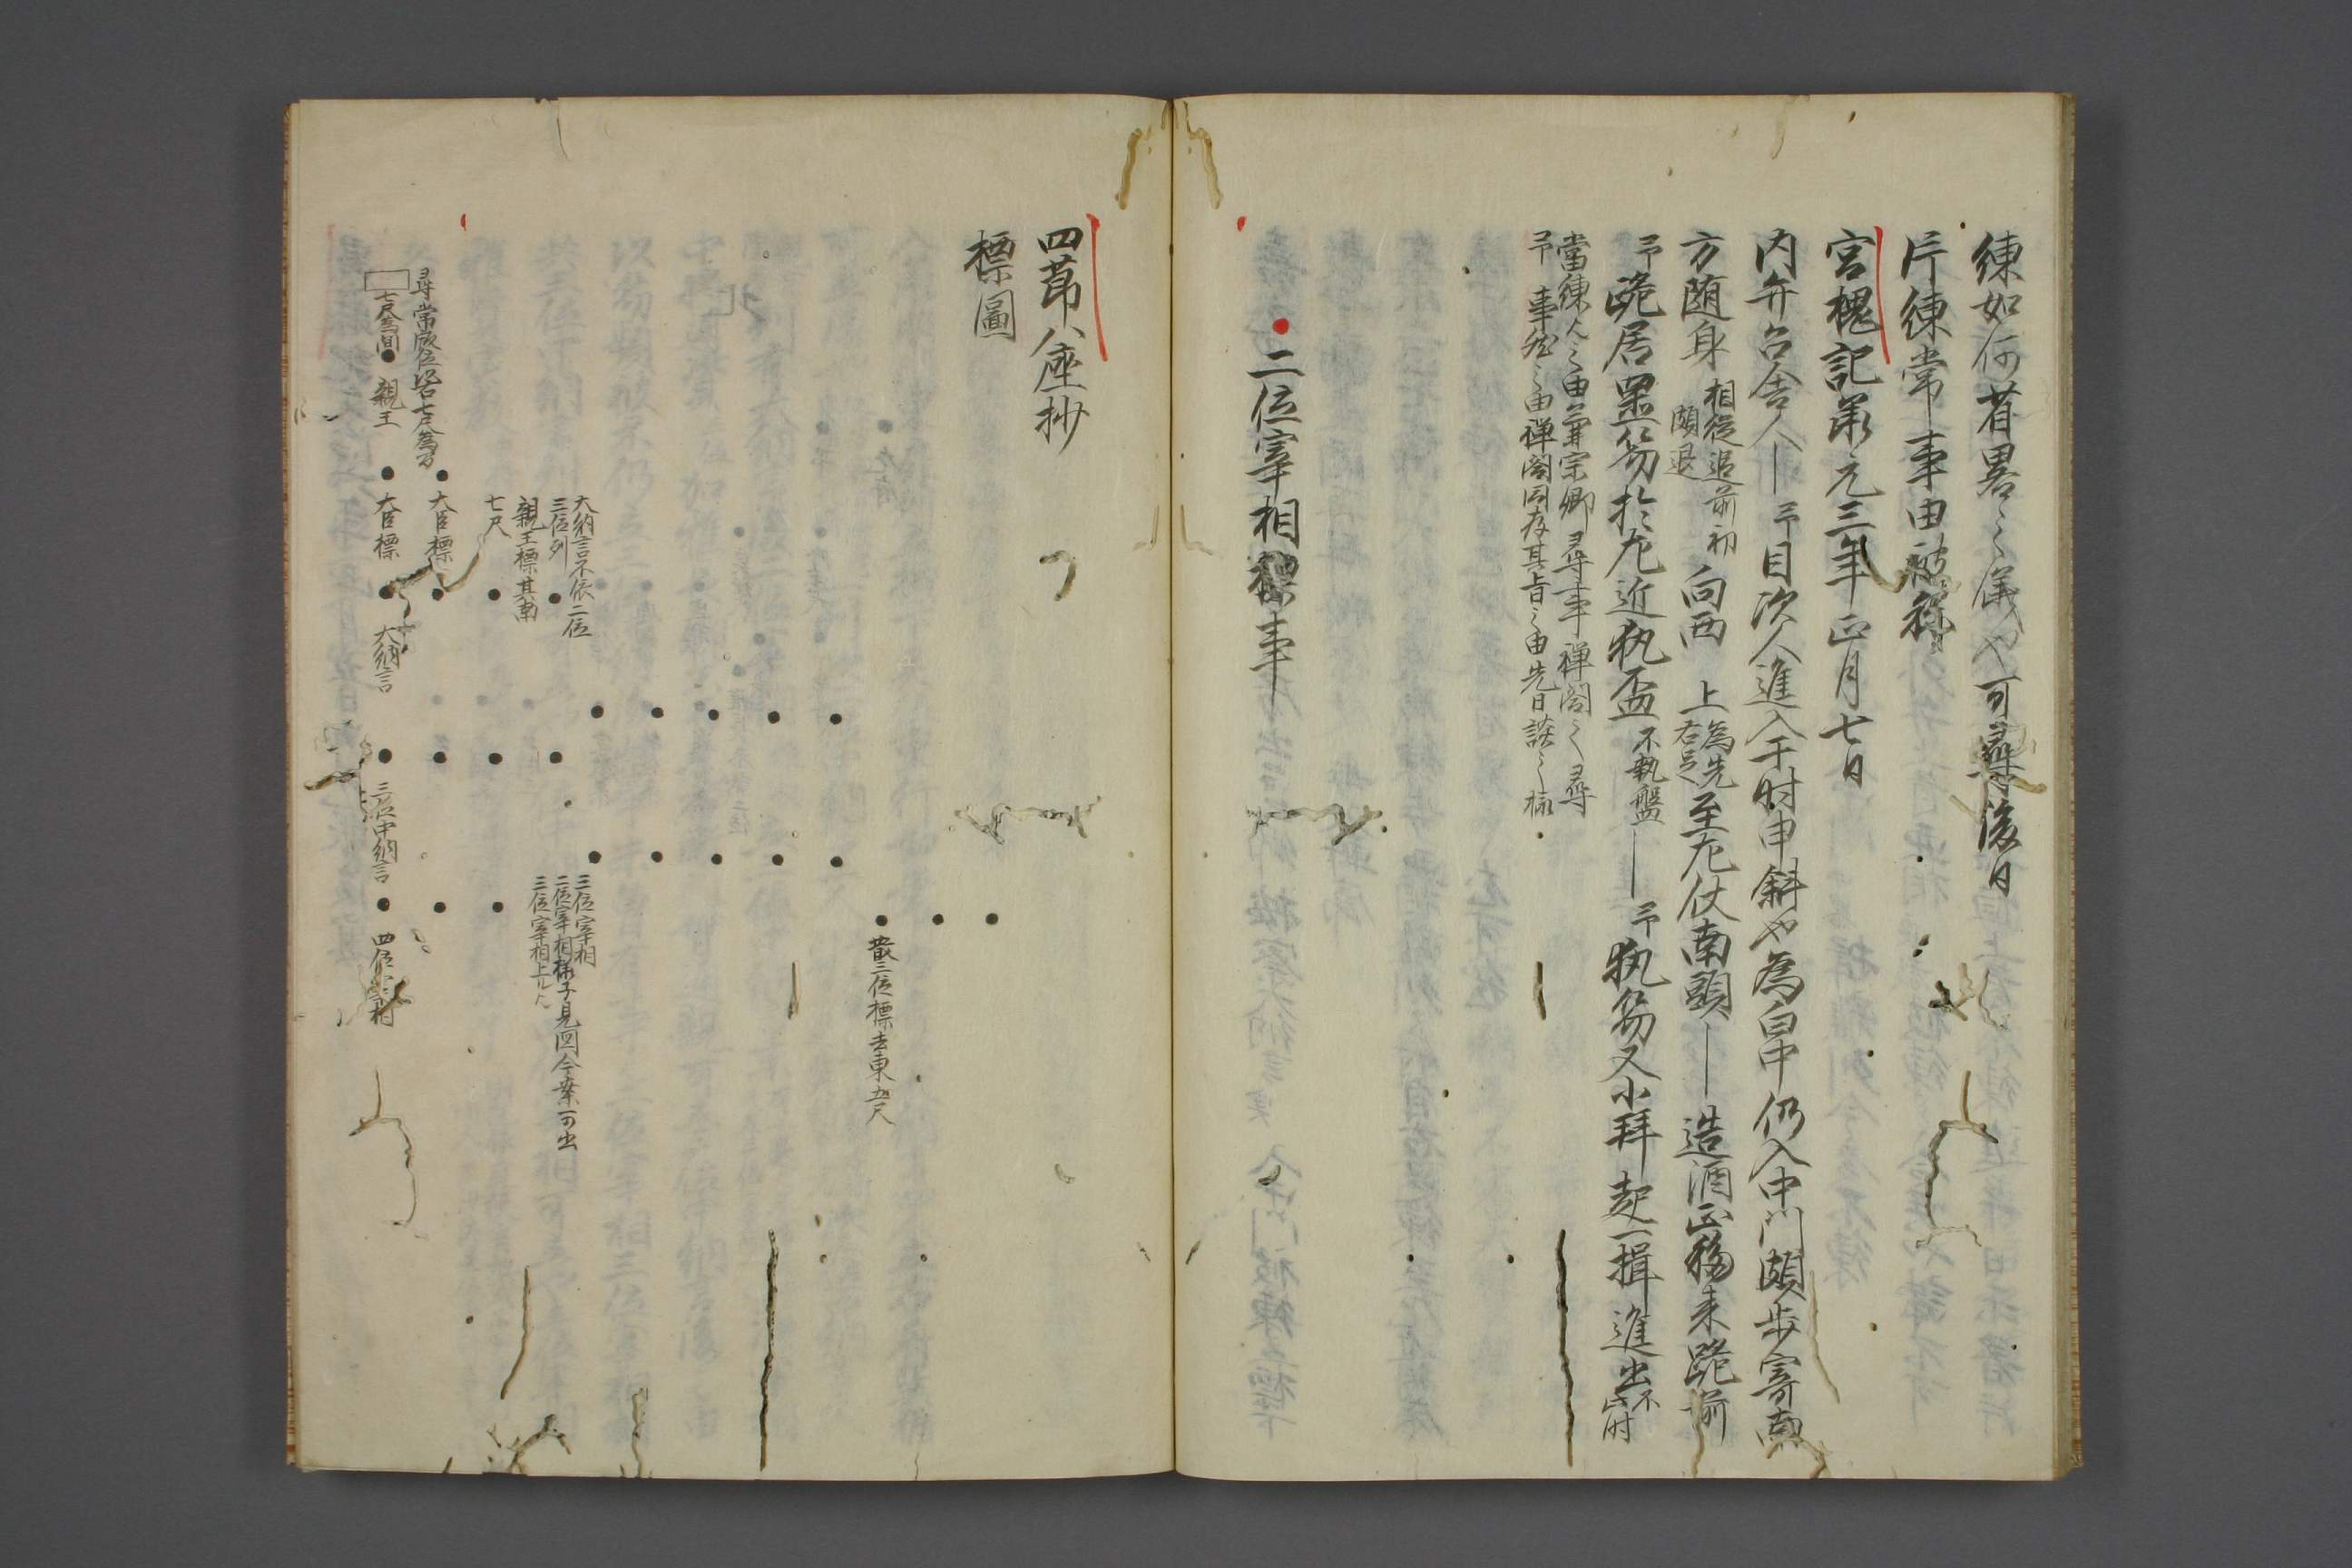 練如何若略之儀也可尋後日
片練常事由被稱
宮槐記承元三年正月七日
内弁召舎人ー予目次人進入于時申斜也為白中仍入中門頗歩寄南
方随身相従追前初頗退向西上為先右足至左仗南頭ー造酒正移来跪前
予跪居置笏於左近執盃不執盤ー予執笏又小拝起一揖進出不
當練人之由兼宗卿尋事禅閤之尋
予事然之由禅閤同存其旨之由先日談之
二位宰相標事
四節八座抄
標圖
散三位標去東五尺
大納言不依二位
三位列
親王標其南
七尺
三位宰相
二位宰相様子見図今案可出
三位宰相上
尋常版位以七尺為
大臣標
七尺為間
親王
大臣標
大納言
三位中納言
四位